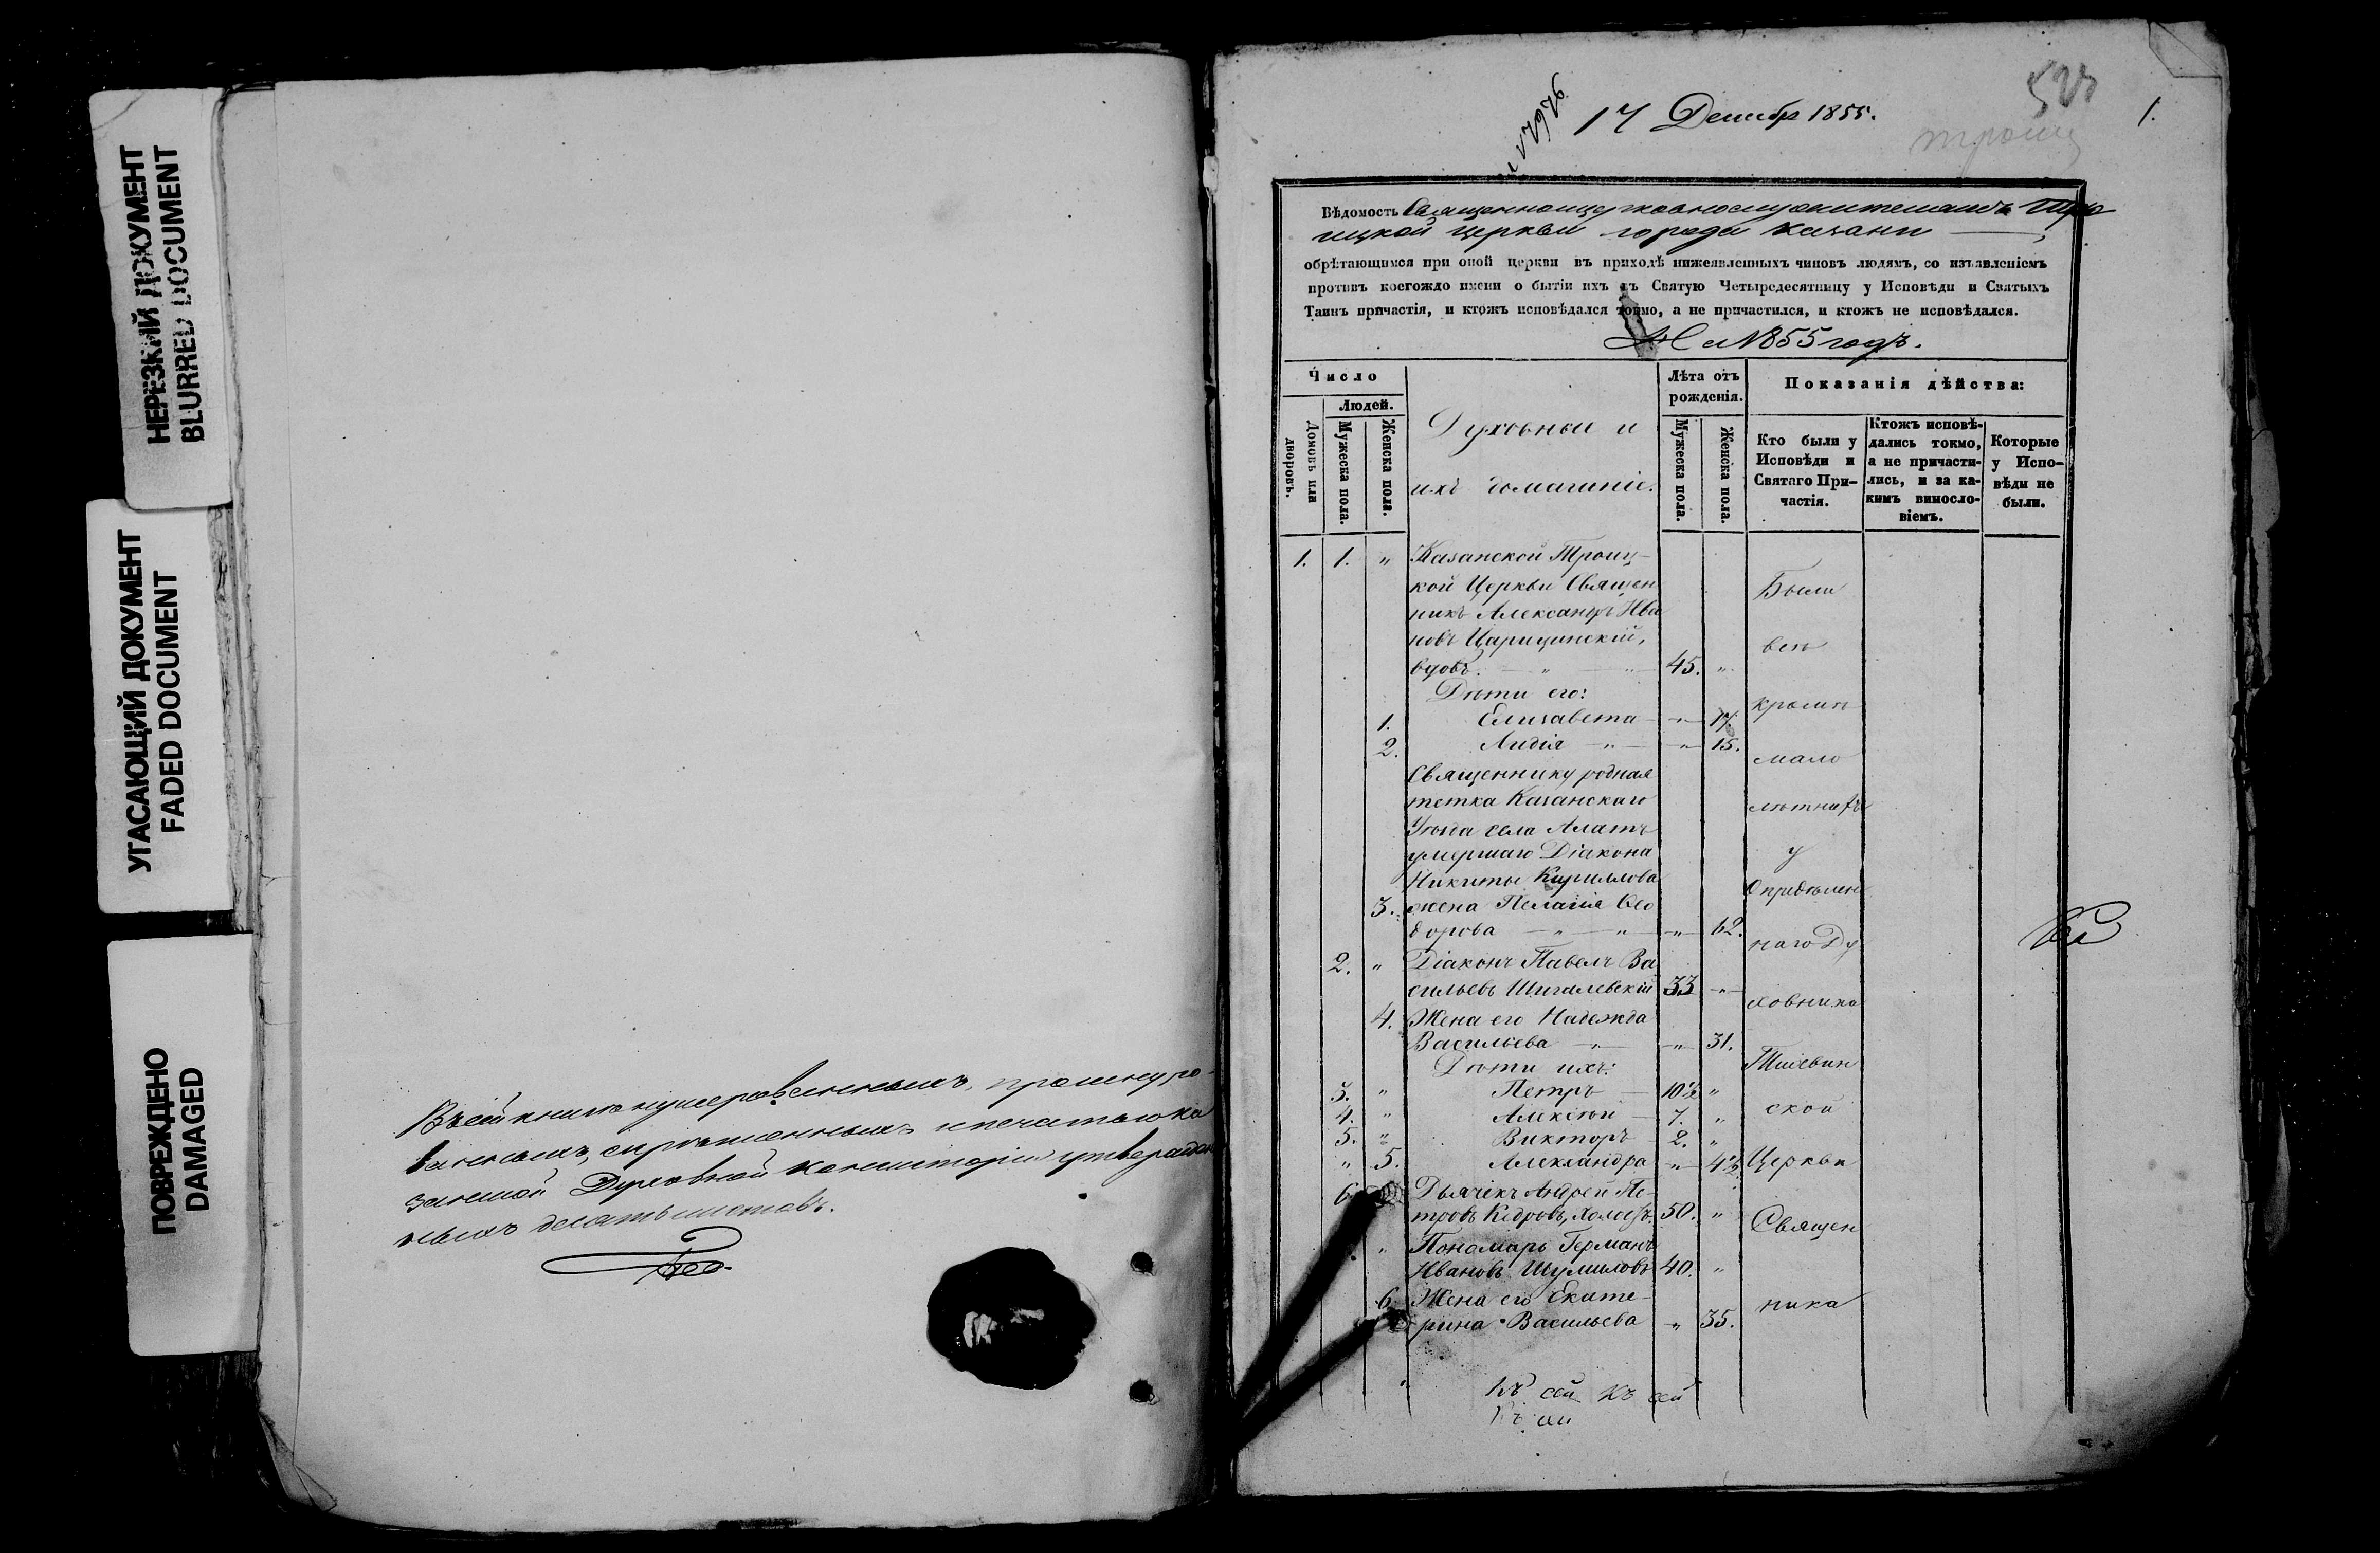 НЕРЕЗКИЙ ДОКУМЕНТ
BLURRED DOCUMENT
УГАСАЮЩИЙ ДОКУМЕНТ
FADED DOCUMENT
ПОВРЕЖДЕНО
DAMAGED
Въ сей книге нумерованныхъ, прошнуро-
ванныхъ, скрепленныхъ и печатью ка
занской Духовной консисторіи утвержден
ныхъ десять листовъ.
17 Декабр 1855.
1.
Вѣдомость Священноцерковнослужителямъ Тро
ицкой церкви города Казани
обрѣтающимся при оной церкви въ приходѣ нижеявленныхъ чиновъ людямъ, со изъявленіемъ
противъ коегождо имени о бытіи ихъ въ Святую Четыредесятницу у Исповѣди и Святыхъ
Таинъ причастія, и ктожъ исповѣдался токмо, а не причастился, и ктожъ не исповѣдался.
На 1855 годъ.
Число
Людей.
Домовъ или дворовъ.
Мужеска пола.
Женска пола.
Духовные и
ихъ домашніе.
Лѣта отъ рожденія.
Мужеска пола.
Женска пола.
Показанія дѣйства:
Кто были у Исповѣди и Святаго При-частія.
Ктожъ исповѣ-дались токмо, а не причасти-лись, и за ка-кимъ винословіемъ.
Которые у Испо-вѣди не были.
1. 1. " Казанской Троиц-
кой Церкви Священ
никъ Александръ Ива
новъ Царицинскій,
вдовъ. 45. "
Дѣти его:
1. Елизавета " 17.
2. Лидія " 15.
Священнику родная
тетка Казанскаго
Уѣзда села Алатъ
умершаго Діакона
Никиты Кириллова
3. жена Пелагія Ѳео
дорова " 62.
2. " Діаконъ Павелъ Ва
сильевъ Шигалевскій 33 "
4. Жена его Надежда
Васильева " 31.
Дѣти ихъ:
3. " Петръ 10½ "
4. " Алексѣй 7. "
5. " Викторъ 2. "
" 5. Александра " 4½
6. Дьячекъ Андрей Пе-
тровъ Кедровъ, холостъ. 50. "
" Пономарь Германъ
Ивановъ Шумиловъ 40. "
6. Жена его Екате-
рина Васильева " 35.
Были
всѣ
кромѣ
мало
лѣтнихъ
у
Опредѣлен
наго Ду
ховника
Тихвин
ской
Церкви
Священ
ника
Къ сей Къ сей
Къ